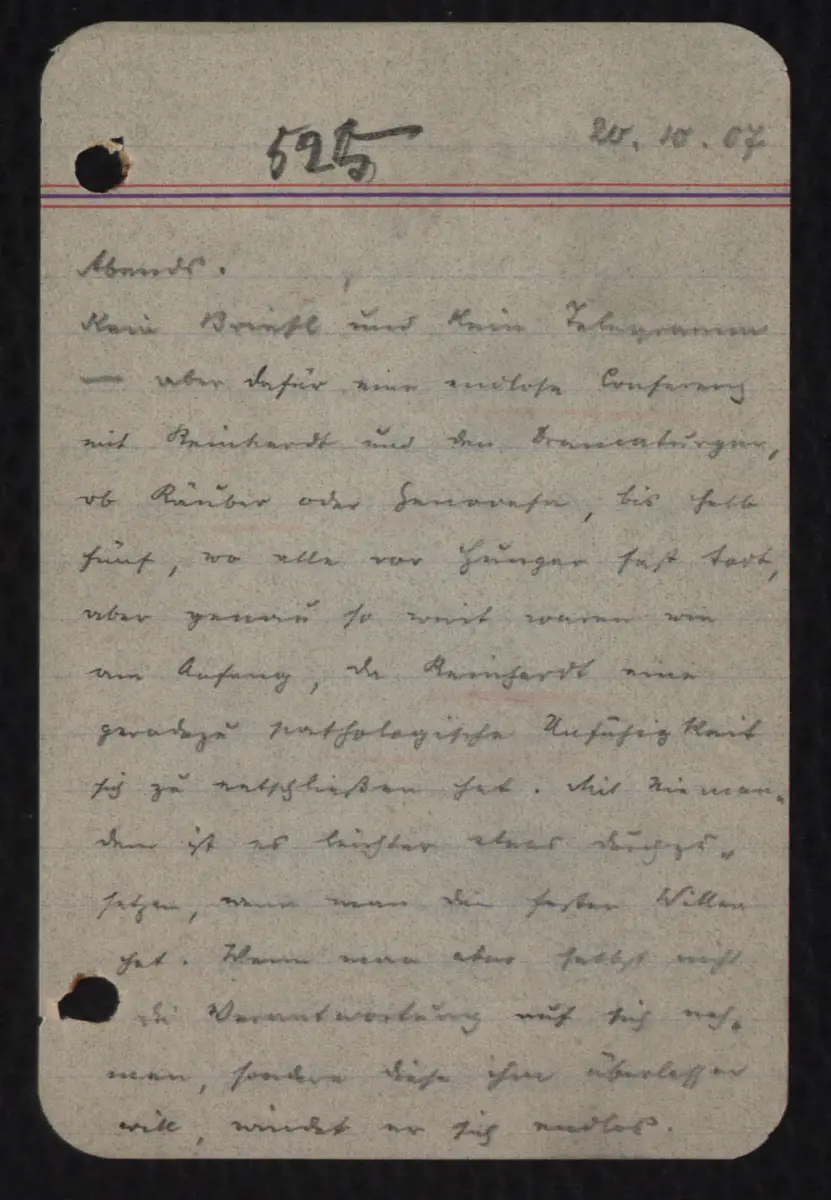 525
20.10.07
Abends.
Kein Briefl und kein Telegramm
— aber dafür eine endlose Conferenz
mit Reinhardt und den Dramaturgen,
ob Räuber oder Genovefa, bis halb
fünf, wo alle vor Hunger fast todt,
aber genau so weit waren wie
am Anfang, da Reinhardt eine
geradezu pathologische Unfähigkeit
sich zu entschließen hat. Mit Nieman-
dem ist es leichter etwas durchzu-
setzen, wenn man den festen Willen
hat. Wenn man aber selbst nicht
die Verantwortung auf sich neh-
men, sondern diese ihm überlassen
will, windet er sich endlos.